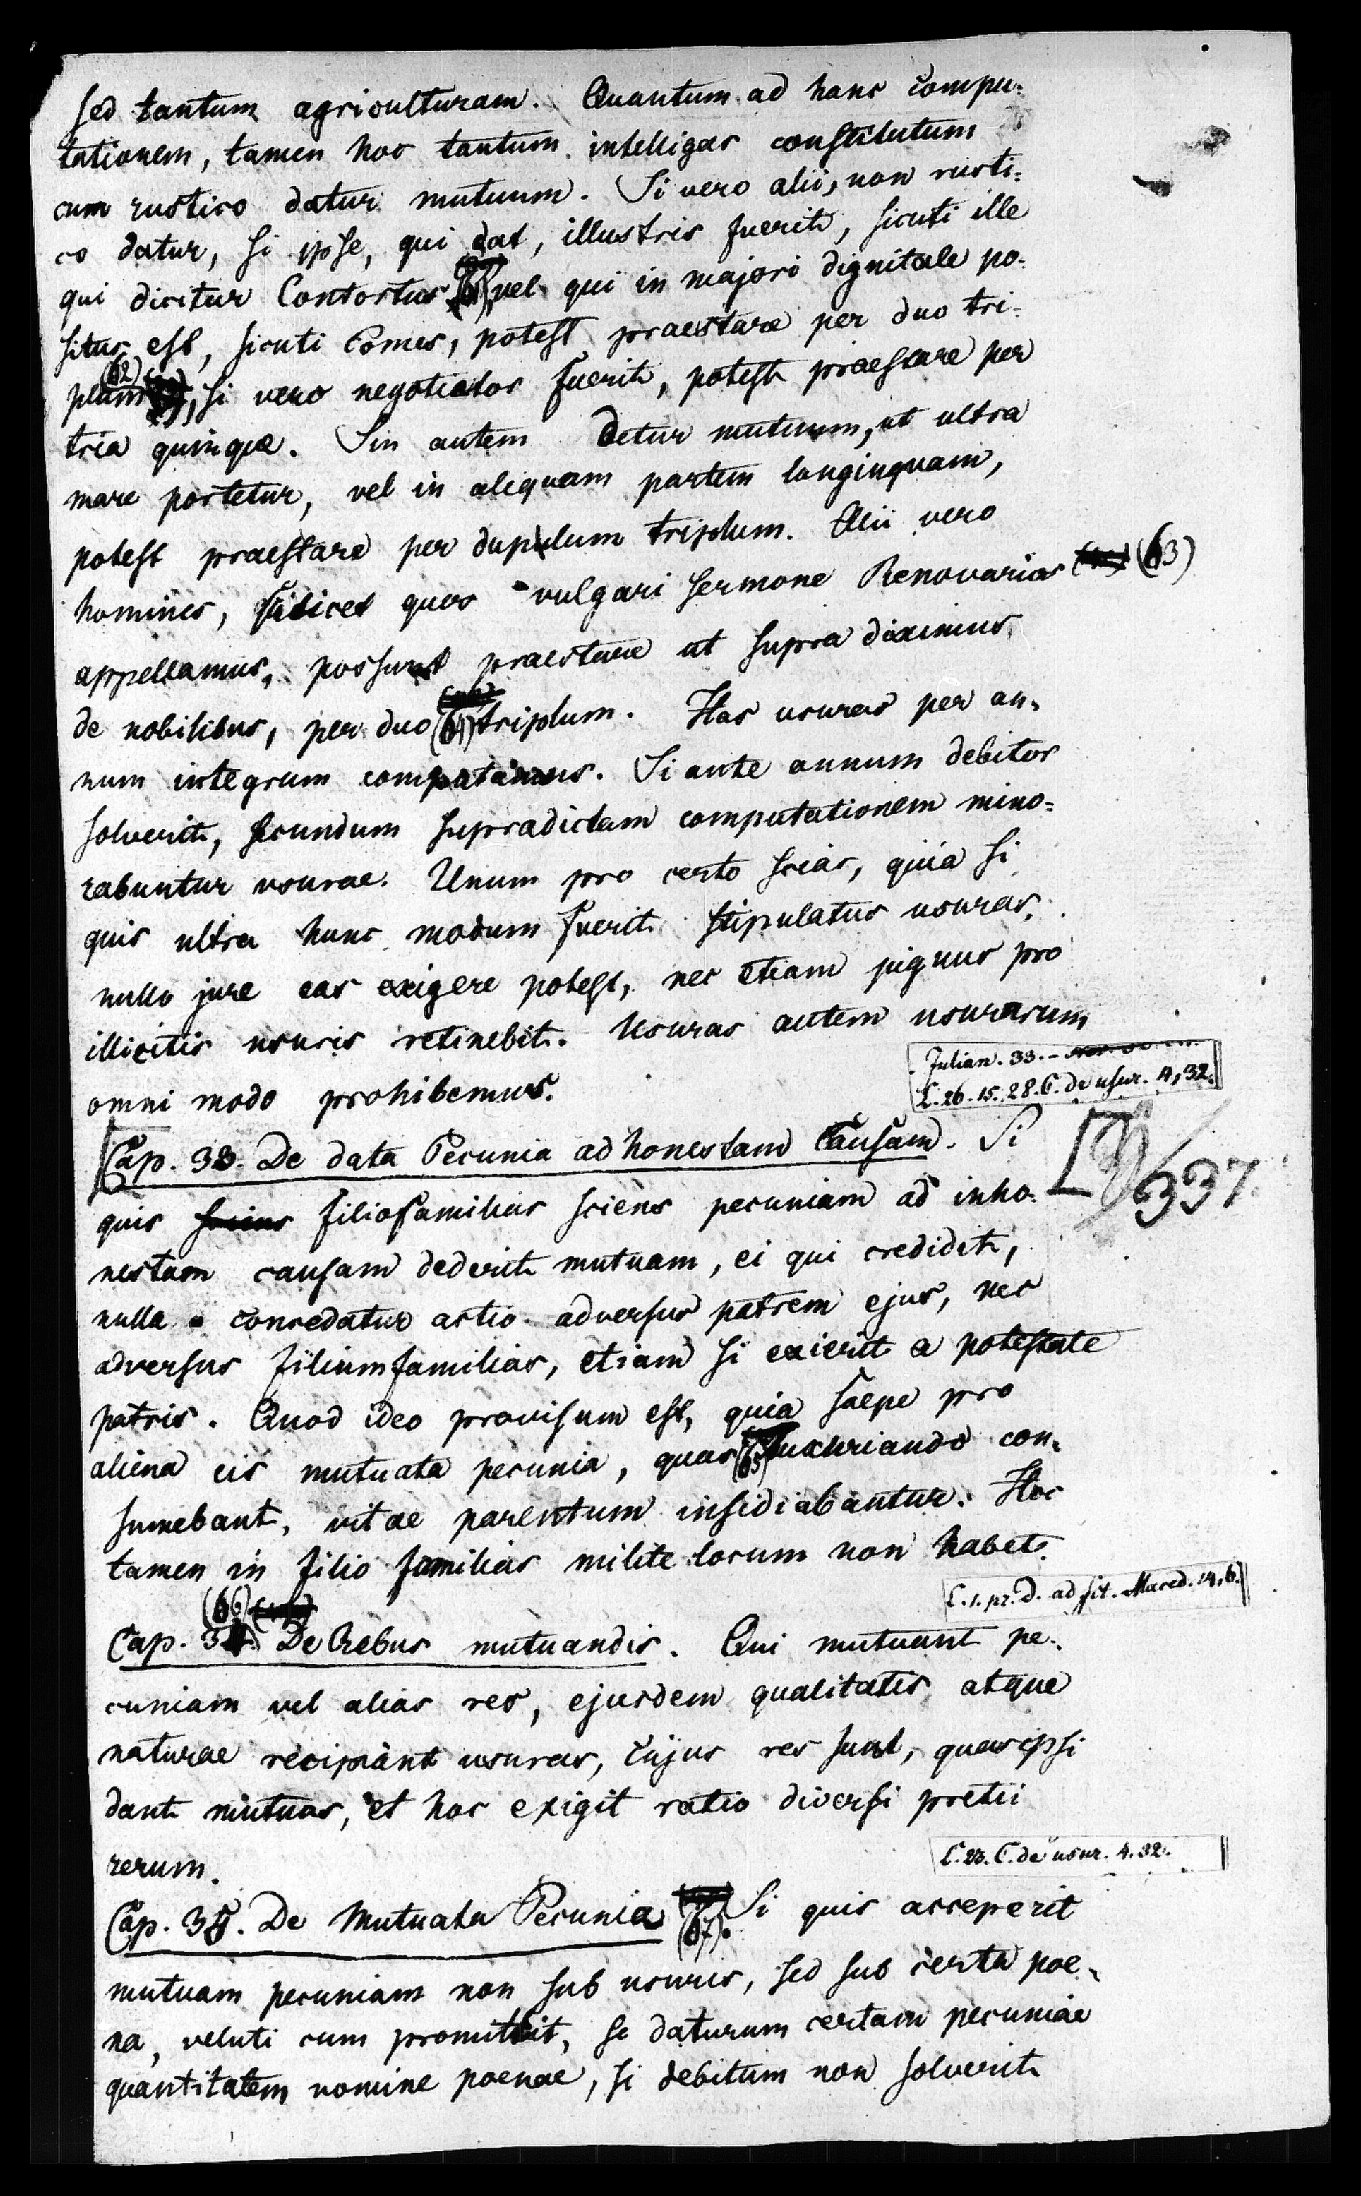 sed tantum agriculturam. Quantum ad hanc compu-
tationem, tamen hoc tantum intelligas constitutum
cum rustico datur mutuum. Si vero alii, non rusti-
co datur, si ipse, qui dat, illustris fuerit, sicuti ille
qui dicitur Contortus (61), vel qui in majori dignitate po-
situs est, sicuti Comes, potest praestare per duo tri-
plum (62), si vero negotiator fuerit, potest praestare per
tria quinque. Sin autem detur mutuum, ut ultra
mare portetur, vel in aliquam partem longinquam,
potest praestare per duplum triplum. Alii vero
homines, scilicet quos vulgari sermone Renovarios (63)
appellamus, possunt praestare ut supra diximus
de nobilibus, per duo (64) triplum. Has usuras per an-
num integrum computamus. Si ante annum debitor
solverit, secundum supradictam computationem mino-
rabuntur usurae. Unum pro certo scias, quia si
quis ultra hunc modum fuerit stipulatus usuras,
nullo jure eas exigere potest, nec etiam pignus pro
illicitis usuris retinebit. Usuras autem usurarum
omni modo prohibemus.
Julian. 33. -
L. 26. 15. 28. C. de usur. 4, 32.
Cap. 33. De data Pecunia ad honestam Causam. Si
337.
quis sciens filiofamilias sciens pecuniam ad inho-
nestam causam dederit mutuam, ei qui credidit,
nulla concedatur actio adversus patrem ejus, nec
adversus filiumfamilias, etiam si exierit a potestate
patris. Quod ideo provisum est, quia saepe pro
aliena eis mutuata pecunia, quas (65) luxuriando con-
sumebant, vitae parentum insidiabantur. Hoc
tamen in filio familias milite locum non habet.
L. 1. pr. D. ad sct. Maced. 14, 6.
(66)
Cap. 34. De Rebus mutuandis. Qui mutuant pe-
cuniam vel alias res, ejusdem qualitatis atque
naturae recipiant usuras, cujus res sunt, quas ipsi
dant mutuas, et hoc exigit ratio diversi pretii
rerum.
L. 23. C. de usur. 4. 32.
Cap. 35. De Mutuata Pecunia (67). Si quis acceperit
mutuam pecuniam non sub usuris, sed sub certa poe-
na, veluti cum promittit, se daturum certam pecuniae
quantitatem nomine poenae, si debitum non solverit